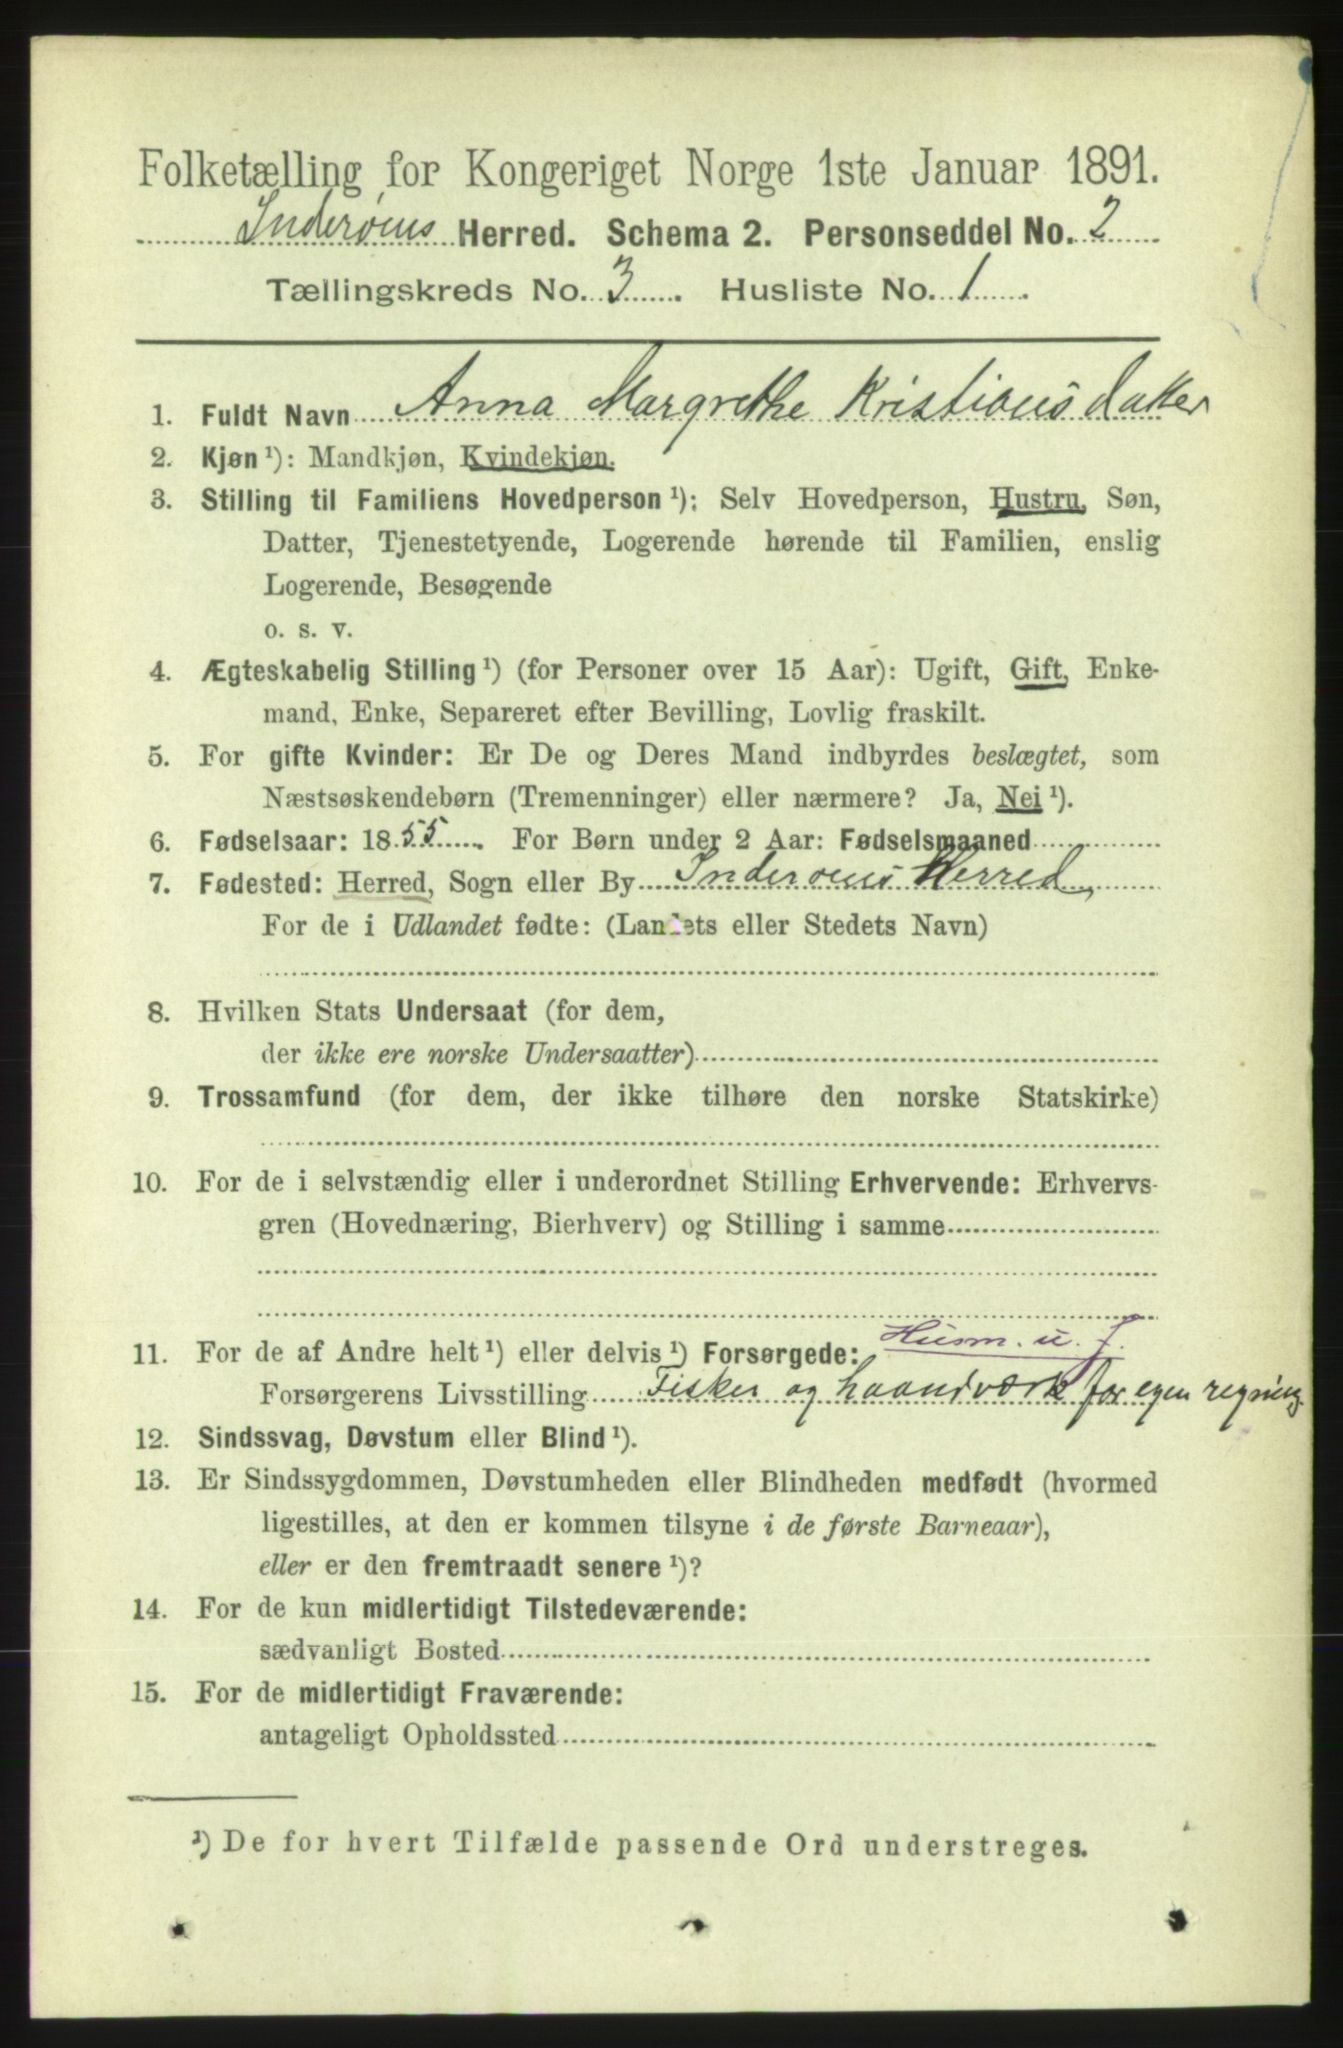 Folketælling for Kongeriget Norge 1ste Januar 1891.
Inderøens Herred. Schema 2. Personseddel No. 2
Tællingskreds No. 3. Husliste No. 1.
1. Fuldt Navn Anna Margrethe Kristiansdatter
2. Kjøn ¹): Mandkjøn, Kvindekjøn.
3. Stilling til Familiens Hovedperson ¹): Selv Hovedperson, Hustru, Søn,
Datter, Tjenestetyende, Logerende hørende til Familien, enslig
Logerende, Besøgende
o. s. v.
4. Ægteskabelig Stilling ¹) (for Personer over 15 Aar): Ugift, Gift, Enke-
mand, Enke, Separeret efter Bevilling, Lovlig fraskilt.
5. For gifte Kvinder: Er De og Deres Mand indbyrdes beslægtet, som
Næstsøskendebørn (Tremenninger) eller nærmere? Ja, Nei ¹).
6. Fødselsaar: 1855. For Børn under 2 Aar: Fødselsmaaned
7. Fødested: Herred, Sogn eller By Inderøens Herred,
For de i Udlandet fødte: (Landets eller Stedets Navn)
8. Hvilken Stats Undersaat (for dem,
der ikke ere norske Undersaatter)
9. Trossamfund (for dem, der ikke tilhøre den norske Statskirke)
10. For de i selvstændig eller i underordnet Stilling Erhvervende: Erhvervs-
gren (Hovednæring, Bierhverv) og Stilling i samme
Husm. u. J.
11. For de af Andre helt ¹) eller delvis ¹) Forsørgede:
Forsørgerens Livsstilling Fisker og haandværk for egen regning
12. Sindssvag, Døvstum eller Blind ¹).
13. Er Sindssygdommen, Døvstumheden eller Blindheden medfødt (hvormed
ligestilles, at den er kommen tilsyne i de første Barneaar),
eller er den fremtraadt senere ¹)?
14. For de kun midlertidigt Tilstedeværende:
sædvanligt Bosted
15. For de midlertidigt Fraværende:
antageligt Opholdssted
¹) De for hvert Tilfælde passende Ord understreges.